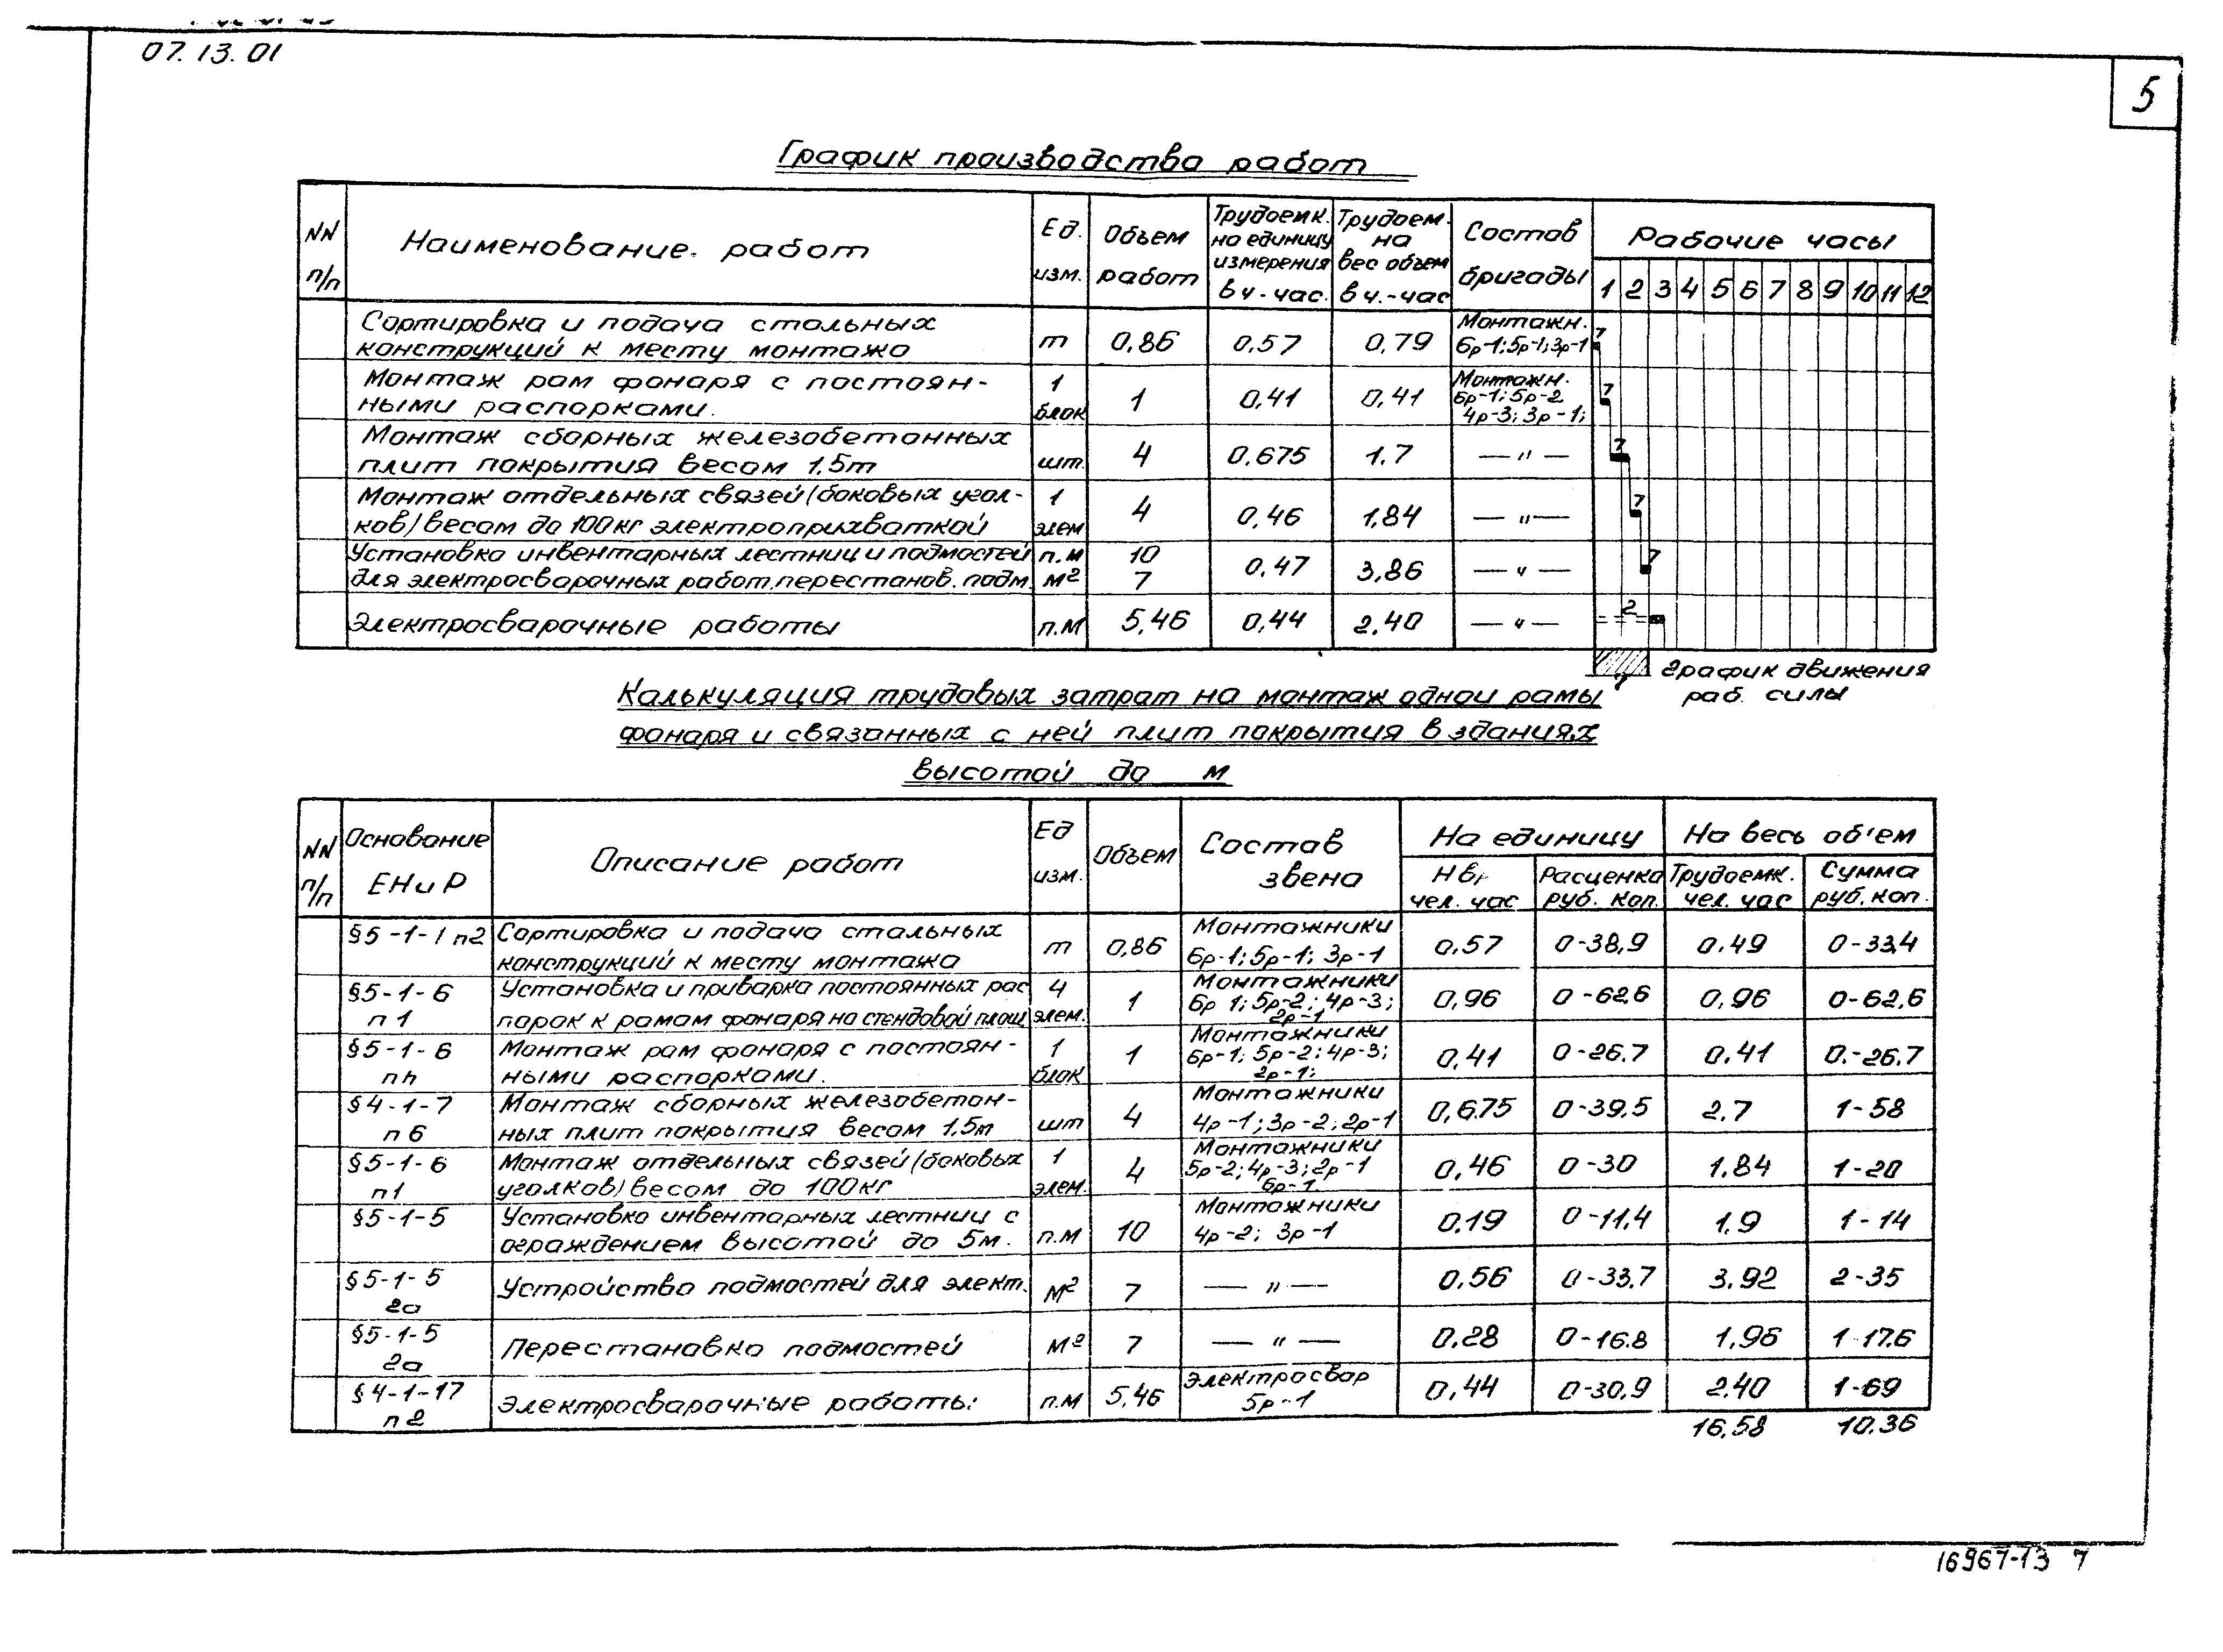 07.13.01
5
График производства работ
NN п/п Наименование работ Ед. изм. Объем работ Трудоемк. на единицу измерения в ч-час. Трудоем. на вес объем в ч.-час Состав бригады Рабочие часы
1 2 3 4 5 6 7 8 9 10 11 12
Сортировка и подача стальных Монтажн. 7
конструкций к месту монтажа т 0,86 0,57 0,79 6р-1; 5р-1; 3р-1
Монтаж рам фонаря с постоян- 1 Монтажн. 7
ными распорками. блок 1 0,41 0,41 6р-1; 5р-2
4р-3; 3р-1;
Монтаж сборных железобетонных 7
плит покрытия весом 1.5т шт. 4 0,675 1.7 — " —
Монтаж отдельных связей (боковых угол- 1 7
ков) весом до 100кг электроприхваткой элем 4 0,46 1,84 — " —
Установка инвентарных лестниц и подмостей п.м 10 7
для электросварочных работ, перестанов. подм. м² 7 0.47 3,86 — " —
Электросварочные работы п.м 5,46 0,44 2.40 — " — 2
7 график движения
раб. силы
Калькуляция трудовых затрат на монтаж одной рамы
фонаря и связанных с ней плит покрытия в зданиях
высотой до м
NN п/п Основание ЕНиР Описание работ Ед изм. Объем Состав звена На единицу На весь об'ем
Нвр чел. час Расценка руб. коп. Трудоемк. чел. час Сумма руб. коп.
§5-1-1 п2 Сортировка и подача стальных Монтажники
конструкций к месту монтажа т 0,86 6р-1; 5р-1; 3р-1 0,57 0-38,9 0.49 0-33,4
§5-1-6 Установка и приварка постоянных рас 4 Монтажники
п1 порок к рамам фонаря на стендовой площ элем. 1 6р 1; 5р-2; 4р-3; 0,96 0-62,6 0,96 0-62,6
2р-1
§5-1-6 Монтаж рам фонаря с постоян- 1 Монтажники
пh ными распорками. блок 1 6р-1; 5р-2; 4р-3; 0,41 0-26.7 0.41 0.-26.7
2р-1;
§4-1-7 Монтаж сборных железобетон- Монтажники
п6 ных плит покрытия весом 1,5т шт 4 4р-1; 3р-2; 2р-1 0,675 0-39.5 2.7 1-58
§5-1-6 Монтаж отдельных связей (боковых 1 Монтажники
п1 уголков) весом до 100кг элем. 4 5р-2; 4р-3; 2р-1 0,46 0-30 1.84 1-20
6р-1.
§5-1-5 Установка инвентарных лестниц с Монтажники
ограждением высотой до 5м. п.м 10 4р-2; 3р-1 0.19 0-11,4 1.9 1-14
§5-1-5
2а Устройство подмостей для элект. м² 7 — " — 0.56 0-33.7 3.92 2-35
§5-1-5
2а Перестановка подмостей м² 7 — " — 0.28 0-16.8 1,96 1-17.6
§4-1-17 Электросвар
п2 Электросварочные работы: п.м 5,46 5р-1 0,44 0-30,9 2.40 1-69
16.58 10.36
16967-13 7